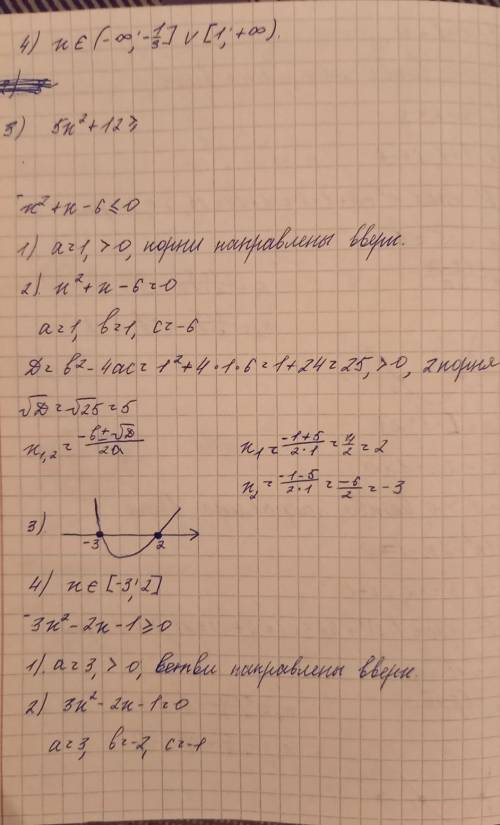 4) x ∈ (-∞; -1/3] ∨ [1; +∞).
3) 5x² + 12 ≥
x² + x - 6 ≤ 0
1) a = 1, > 0, корни направлены вверх.
2). x² + x - 6 = 0
a = 1, b = 1, c = -6
D = b² - 4ac = 1² + 4 · 1 · 6 = 1 + 24 = 25, > 0, 2 корня
√D = √25 = 5
x₁,₂ = (-b ± √D)/2a x₁ = (-1+5)/(2·1) = 4/2 = 2
x₂ = (-1-5)/(2·1) = -6/2 = -3
3). -3 2
4) x ∈ [-3; 2]
3x² - 2x - 1 ≥ 0
1). a = 3, > 0, ветви направлены вверх.
2) 3x² - 2x - 1 = 0
a = 3, b = -2, c = -1